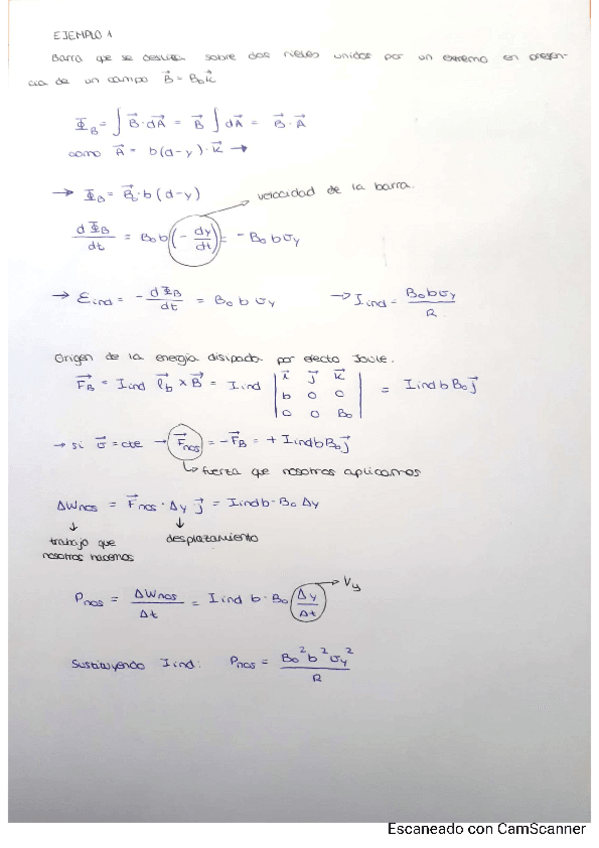 EJEMPLO 1
Barra que se desliza sobre dos rieles unidos por un extremo en presen-
cia de un campo B⃗ = B₀k⃗
Φ_B = ∫ B⃗ · dA⃗ = B⃗ ∫ dA⃗ = B⃗ · A⃗
como A⃗ = b(d-y) · k⃗ →
→ Φ_B = B⃗₀ · b (d-y)
velocidad de la barra.
dΦ_B/dt = B₀ b (- dy/dt) = - B₀ b v_y
→ ε_ind = - dΦ_B/dt = B₀ b v_y → I_ind = B₀ b v_y / R
Origen de la energía disipada por efecto Joule.
F⃗_B = I_ind l⃗_b × B⃗ = I_ind | i⃗ j⃗ k⃗ ; b 0 0 ; 0 0 B₀ | = I_ind b B₀ j⃗
→ si v⃗ = cte → F⃗_nos = - F⃗_B = + I_ind b B₀ j⃗
↳ fuerza que nosotros aplicamos
ΔW_nos = F⃗_nos · Δy j⃗ = I_ind b · B₀ Δy
↓ ↓
trabajo que desplazamiento
nosotros hacemos
P_nos = ΔW_nos/Δt = I_ind b · B₀ Δy/Δt → V_y
Sustituyendo I_ind: P_nos = B₀² b² v_y² / R
Escaneado con CamScanner